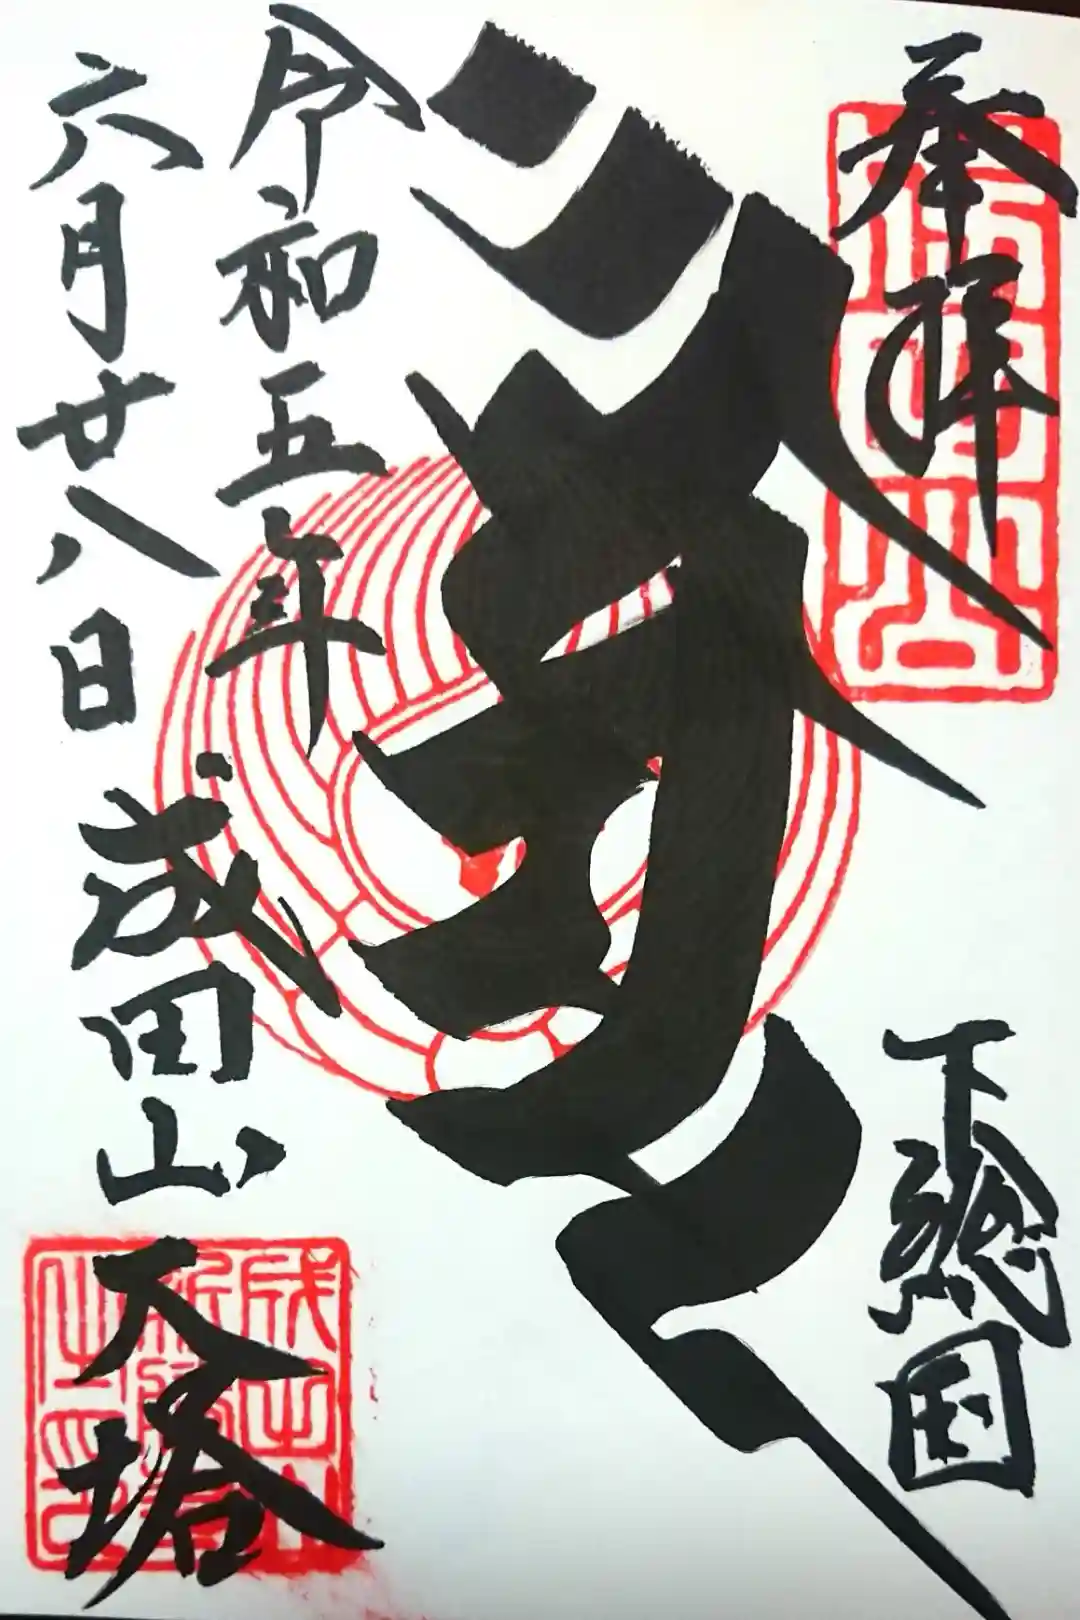 奉拝
下總国
令和五年
六月廿八日
成田山
大塔